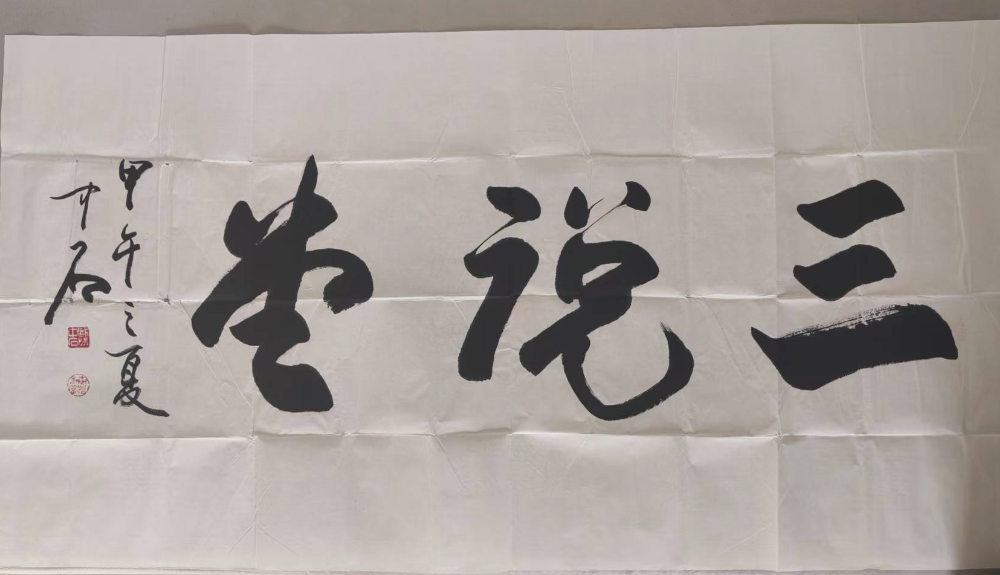 三说堂
甲午之夏
中石